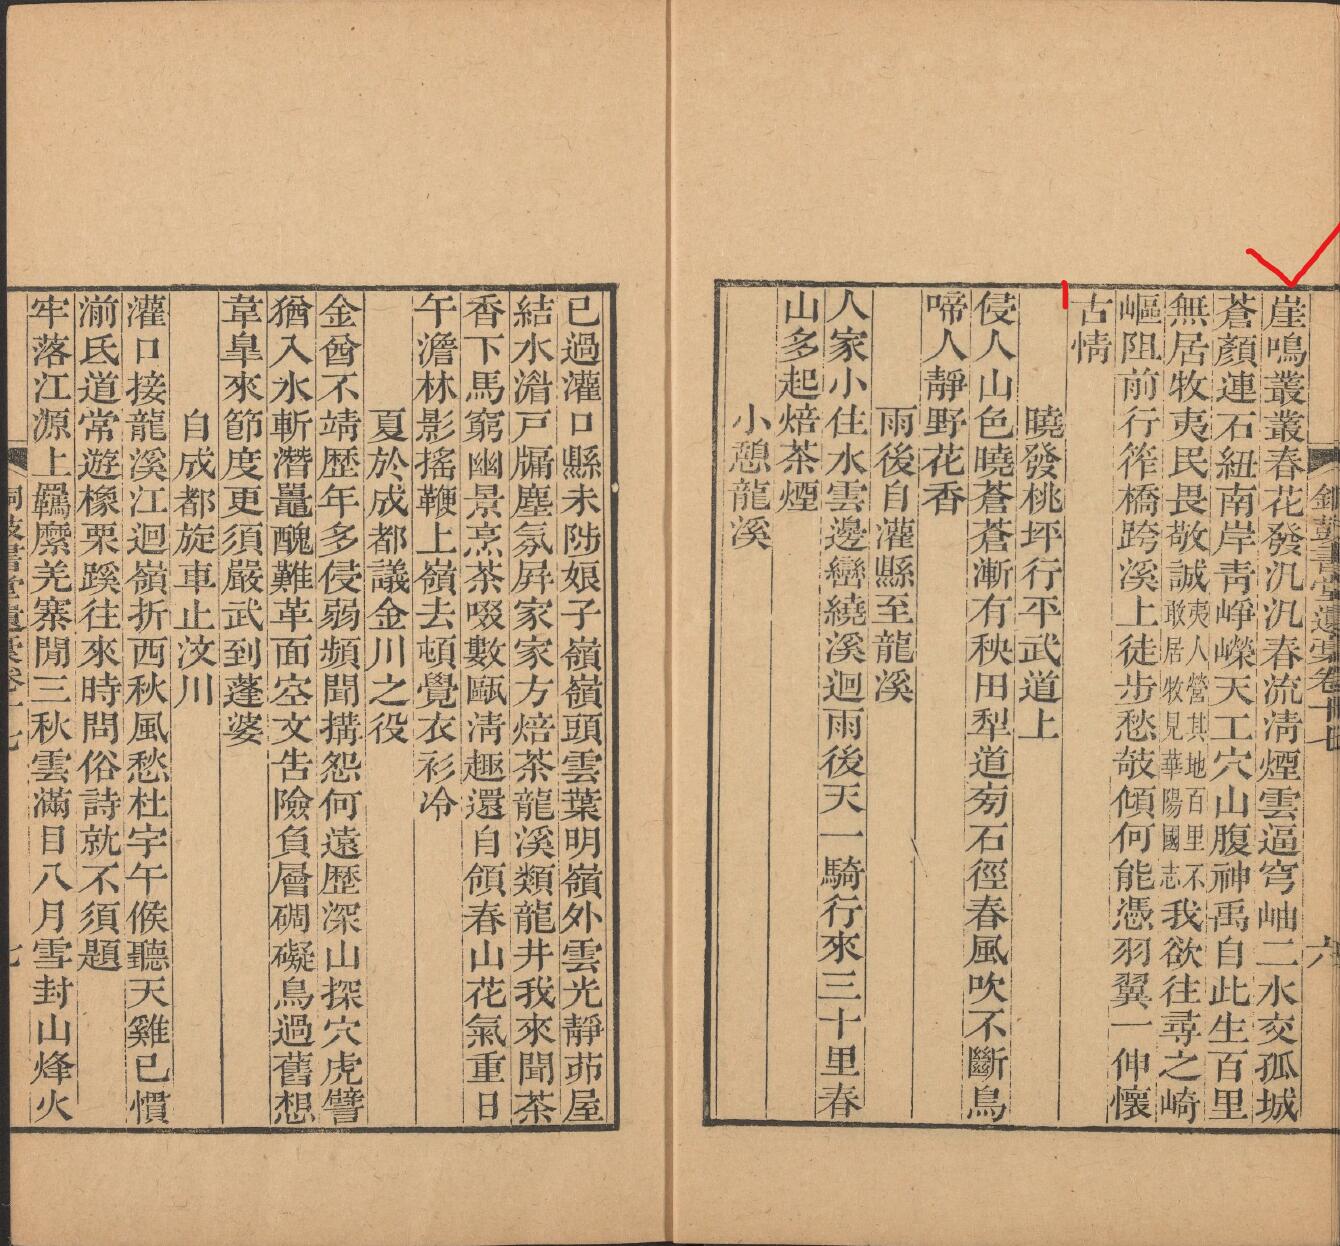 銅鼓書堂遺稾卷十七 六
崖鳴叢叢春花發汎汎春流淸煙雲逼穹岫二水交孤城
蒼顏連石紐南岸靑崢嶸天工穴山腹神禹自此生百里
無居牧夷民畏敬誠夷人營其地百里不敢居牧見華陽國志我欲往尋之崎
嶇阻前行筰橋跨溪上徒步愁攲傾何能憑羽翼一伸懷
古情
曉發桃坪行平武道上
侵人山色曉蒼蒼漸有秧田犁道㫄石徑春風吹不斷鳥
啼人靜野花香
雨後自灌縣至龍溪
人家小住水雲邊巒繞溪迴雨後天一騎行來三十里春
山多起焙茶煙
小憩龍溪
已過灌口縣未陟娘子嶺嶺頭雲葉明嶺外雲光靜茆屋
結水濳戸牖塵氛屛家家方焙茶龍溪類龍井我來聞茶
香下馬窮幽景烹茶啜數甌淸趣還自領春山花氣重日
午澹林影搖鞭上嶺去頓覺衣衫冷
夏於成都議金川之役
金酋不靖歷年多侵弱頻聞搆怨何遠歷深山探穴虎譬
猶入水斬潛鼉醜難革面空文告險負層碉礙鳥過舊想
韋臯來節度更須嚴武到蓬婆
自成都旋車止汶川
灌口接龍溪江迴嶺折西秋風愁杜宇午候聽天雞已慣
湔氐道常遊橡栗蹊往來時問俗詩就不須題
牢落江源上羈縻羌寨閒三秋雲滿目八月雪封山烽火
銅鼓書堂遺稾卷十七 七